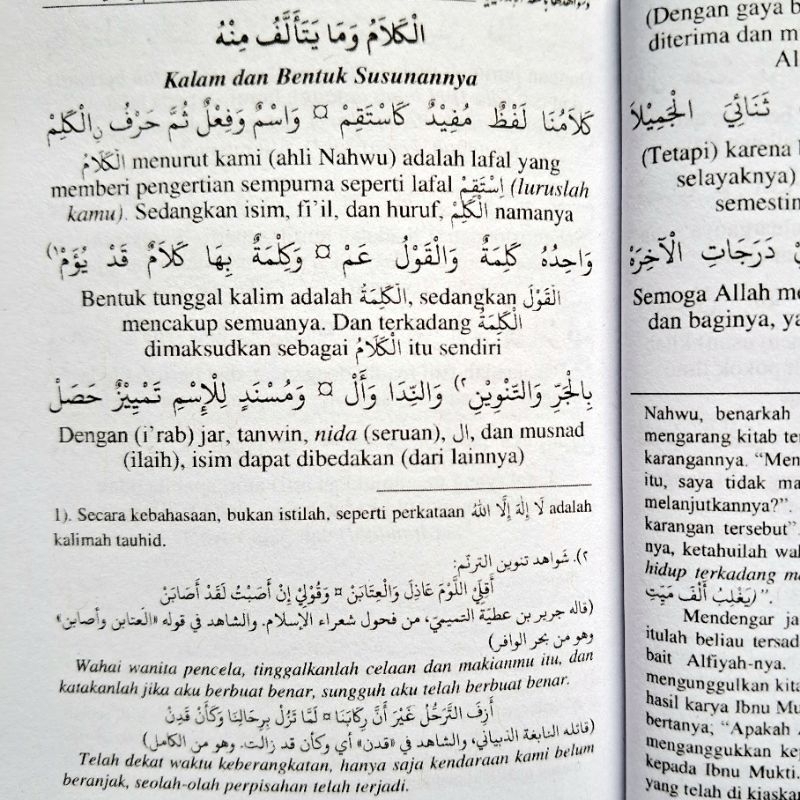 الْكَلَامُ وَمَا يَتَأَلَّفُ مِنْهُ
Kalam dan Bentuk Susunannya
كَلَامُنَا لَفْظٌ مُفِيْدٌ كَاسْتَقِمْ ¤ وَاسْمٌ وَفِعْلٌ ثُمَّ حَرْفُ نِ الْكَلِمْ
الْكَلَامُ menurut kami (ahli Nahwu) adalah lafal yang
memberi pengertian sempurna seperti lafal اِسْتَقِمْ (luruslah
kamu). Sedangkan isim, fi'il, dan huruf, الْكَلِمْ namanya
وَاحِدُهُ كَلِمَةٌ وَالْقَوْلُ عَمْ ¤ وَكِلْمَةٌ بِهَا كَلَامٌ قَدْ يُؤَمْ ١)
Bentuk tunggal kalim adalah الْكَلِمَةُ, sedangkan الْقَوْلُ
mencakup semuanya. Dan terkadang الْكَلِمَةُ
dimaksudkan sebagai الْكَلَامُ itu sendiri
بِالْجَرِّ وَالتَّنْوِيْنِ ٢) وَالنِّدَا وَأَلْ ¤ وَمُسْنَدٍ لِلْإِسْمِ تَمْيِيْزٌ حَصَلْ
Dengan (i'rab) jar, tanwin, nida (seruan), ال, dan musnad
(ilaih), isim dapat dibedakan (dari lainnya)
1). Secara kebahasaan, bukan istilah, seperti perkataan لَا إِلٰهَ إِلَّا اللهُ adalah
kalimah tauhid.
٢). شَواهد تنوين الترنّم:
أَقِلِّي اللَّوْمَ عَاذِلَ وَالْعِتَابَنْ ¤ وَقُوْلِيْ إِنْ أَصَبْتُ لَقَدْ أَصَابَنْ
(قاله جرير بن عطيّة التميميّ، من فحول شعراء الإسلام. والشاهد في قوله «العتابن وأصابن»
وهو من بحر الوافر)
Wahai wanita pencela, tinggalkanlah celaan dan makianmu itu, dan
katakanlah jika aku berbuat benar, sungguh aku telah berbuat benar.
أَزِفَ التَّرَحُّلُ غَيْرَ أَنَّ رِكَابَنَا ¤ لَمَّا تَزُلْ بِرِحَالِنَا وَكَأَنْ قَدِنْ
(قائله النابغة الذبياني، والشاهد في «قدن» أي وكأن قد زالت. وهو من الكامل)
Telah dekat waktu keberangkatan, hanya saja kendaraan kami belum
beranjak, seolah-olah perpisahan telah terjadi.
(Dengan gaya b
diterima dan m
Al
ثَنَائِيَ الْجَمِيْلَا
(Tetapi) karena
selayaknya)
semestin
دَرَجَاتِ الْآخِرَهْ
Semoga Allah me
dan baginya, ya
Nahwu, benarkah
mengarang kitab te
karangannya. "Men
itu, saya tidak ma
melanjutkannya?".
karangan tersebut"
nya, ketahuilah wa
hidup terkadang m
يَغْلِبُ أَلْفَ مَيِّتِ)".
Mendengar ja
itulah beliau tersad
bait Alfiyah-nya.
mengunggulkan kita
hasil karya Ibnu Mu
bertanya; "Apakah A
menganggukkan kep
kepada Ibnu Mukti.
yang telah di kiaskan